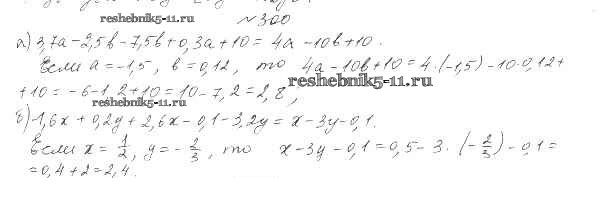 reshebnik5-11.ru
№300
а) 3,7a-2,5b-7,5b+0,3a+10= 4a -10b+10.
Если a=-1,5, b=0,12, то 4a-10b+10=4·(-1,5)-10·0,12+
+10=-6-1,2+10=10-7,2=2,8,
reshebnik5-11.ru
reshebnik5-11.ru
б)-1,6x+0,2y+2,6x-0,1-3,2y=x-3y-0,1.
Если x=1/2, y=-2/3, то x-3y-0,1=0,5-3·(-2/3)-0,1=
=0,4+2=2,4.